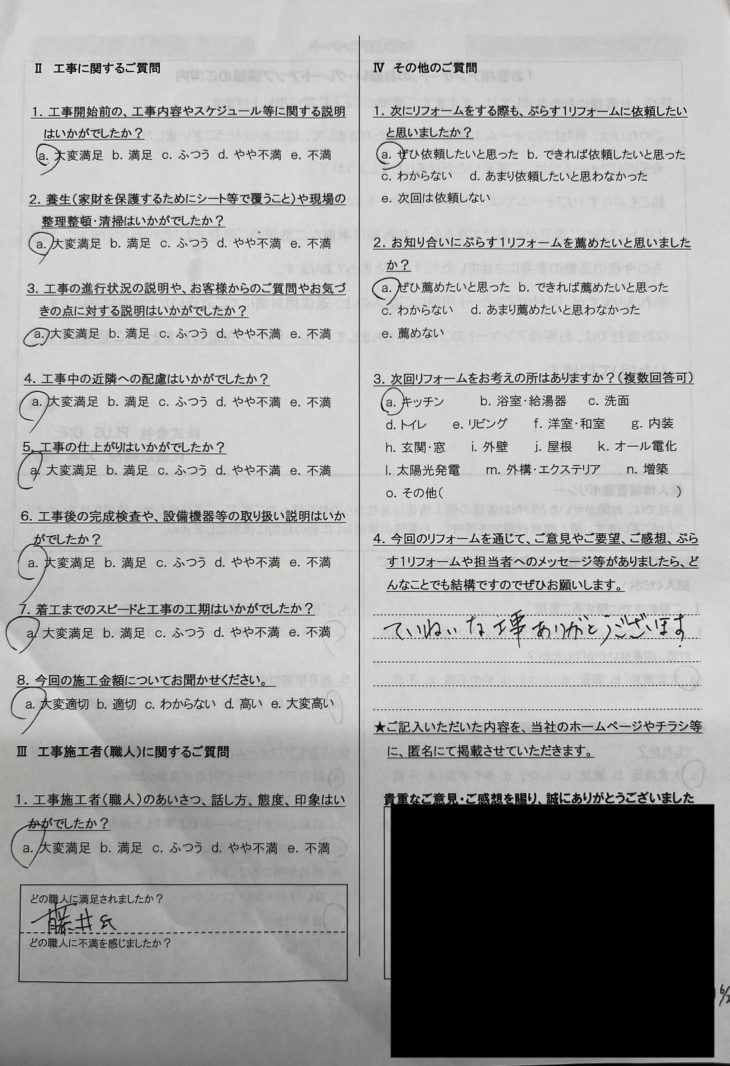 Ⅱ 工事に関するご質問
1. 工事開始前の、工事内容やスケジュール等に関する説明
はいかがでしたか？
a. 大変満足 b. 満足 c. ふつう d. やや不満 e. 不満
2. 養生(家財を保護するためにシート等で覆うこと)や現場の
整理整頓・清掃はいかがでしたか？
a. 大変満足 b. 満足 c. ふつう d. やや不満 e. 不満
3. 工事の進行状況の説明や、お客様からのご質問やお気づ
きの点に対する説明はいかがでしたか？
a. 大変満足 b. 満足 c. ふつう d. やや不満 e. 不満
4. 工事中の近隣への配慮はいかがでしたか？
a. 大変満足 b. 満足 c. ふつう d. やや不満 e. 不満
5. 工事の仕上がりはいかがでしたか？
a. 大変満足 b. 満足 c. ふつう d. やや不満 e. 不満
6. 工事後の完成検査や、設備機器等の取り扱い説明はいか
がでしたか？
a. 大変満足 b. 満足 c. ふつう d. やや不満 e. 不満
7. 着工までのスピードと工事の工期はいかがでしたか？
a. 大変満足 b. 満足 c. ふつう d. やや不満 e. 不満
8. 今回の施工金額についてお聞かせください。
a. 大変適切 b. 適切 c. わからない d. 高い e. 大変高い
Ⅲ 工事施工者(職人)に関するご質問
1. 工事施工者(職人)のあいさつ、話し方、態度、印象はい
かがでしたか？
a. 大変満足 b. 満足 c. ふつう d. やや不満 e. 不満
どの職人に満足されましたか？
藤井氏
どの職人に不満を感じましたか？
Ⅳ その他のご質問
1. 次にリフォームをする際も、ぷらす1リフォームに依頼したい
と思いましたか？
a. ぜひ依頼したいと思った b. できれば依頼したいと思った
c. わからない d. あまり依頼したいと思わなかった
e. 次回は依頼しない
2. お知り合いにぷらす1リフォームを薦めたいと思いました
か？
a. ぜひ薦めたいと思った b. できれば薦めたいと思った
c. わからない d. あまり薦めたいと思わなかった
e. 薦めない
3. 次回リフォームをお考えの所はありますか？(複数回答可)
a. キッチン b. 浴室・給湯器 c. 洗面
d. トイレ e. リビング f. 洋室・和室 g. 内装
h. 玄関・窓 i. 外壁 j. 屋根 k. オール電化
l. 太陽光発電 m. 外構・エクステリア n. 増築
o. その他( )
4. 今回のリフォームを通じて、ご意見やご要望、ご感想、ぷら
す1リフォームや担当者へのメッセージ等がありましたら、ど
んなことでも結構ですのでぜひお願いします。
ていねいな工事ありがとうございます
★ご記入いただいた内容を、当社のホームページやチラシ等
に、匿名にて掲載させていただきます。
貴重なご意見・ご感想を賜り、誠にありがとうございました